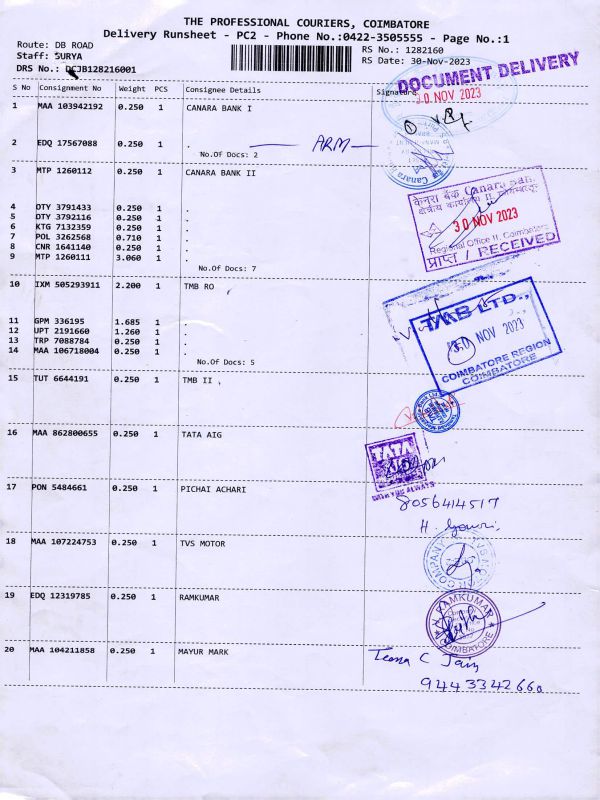 THE PROFESSIONAL COURIERS, COIMBATORE
Delivery Runsheet - PC2 - Phone No.:0422-3505555 - Page No.:1
Route: DB ROAD
RS No.: 1282160
Staff: SURYA
RS Date: 30-Nov-2023
DRS No.: DCJB128216001
DOCUMENT DELIVERY
30 NOV 2023
S No Consignment No Weight PCS Consignee Details Signature
1 MAA 103942192 0.250 1 CANARA BANK I
2 EDQ 17567088 0.250 1 .
ARM
No.Of Docs: 2
3 MTP 1260112 0.250 1 CANARA BANK II
केनरा बैंक Canara Bank
30 NOV 2023
Regional Office II, Coimbatore
प्राप्त / RECEIVED
4 DTY 3791433 0.250 1 .
5 DTY 3792116 0.250 1 .
6 KTG 7132359 0.250 1 .
7 POL 3262568 0.710 1 .
8 CNR 1641140 0.250 1 .
9 MTP 1260111 3.060 1 .
No.Of Docs: 7
10 IXM 505293911 2.200 1 TMB RO
TMB LTD.,
30 NOV 2023
COIMBATORE REGION
COIMBATORE
11 GPM 336195 1.685 1 .
12 UPT 2191660 1.260 1 .
13 TRP 7088784 0.250 1 .
14 MAA 106718004 0.250 1 .
No.Of Docs: 5
15 TUT 6644191 0.250 1 TMB II
16 MAA 862800655 0.250 1 TATA AIG
TATA
AIG
17 PON 5484661 0.250 1 PICHAI ACHARI
8056414517
H. Gowri
18 MAA 107224753 0.250 1 TVS MOTOR
19 EDQ 12319785 0.250 1 RAMKUMAR
RAMKUMAR
COIMBATORE
20 MAA 104211858 0.250 1 MAYUR MARK
Teena C Jain
9443342660